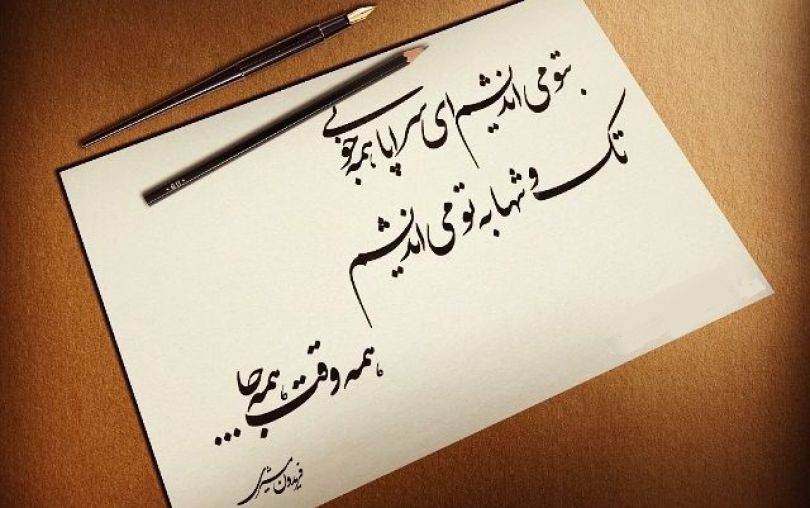 بتو می اندیشم ای سراپا همه خوبی
تک و تنها به تو می اندیشم
همه وقت همه جا ...
فریدون مشیری